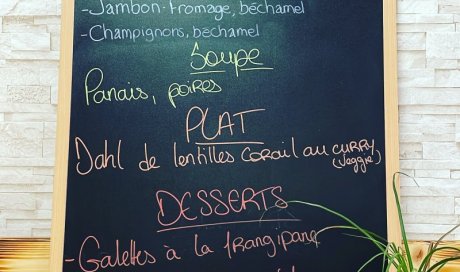 -Jambon-Fromage, béchamel
-Champignons, béchamel
Soupe
Panais, poires
PLAT
Dahl de lentilles corail au CURRY
(Veggie)
DESSERTS
-Galettes à la frangipane